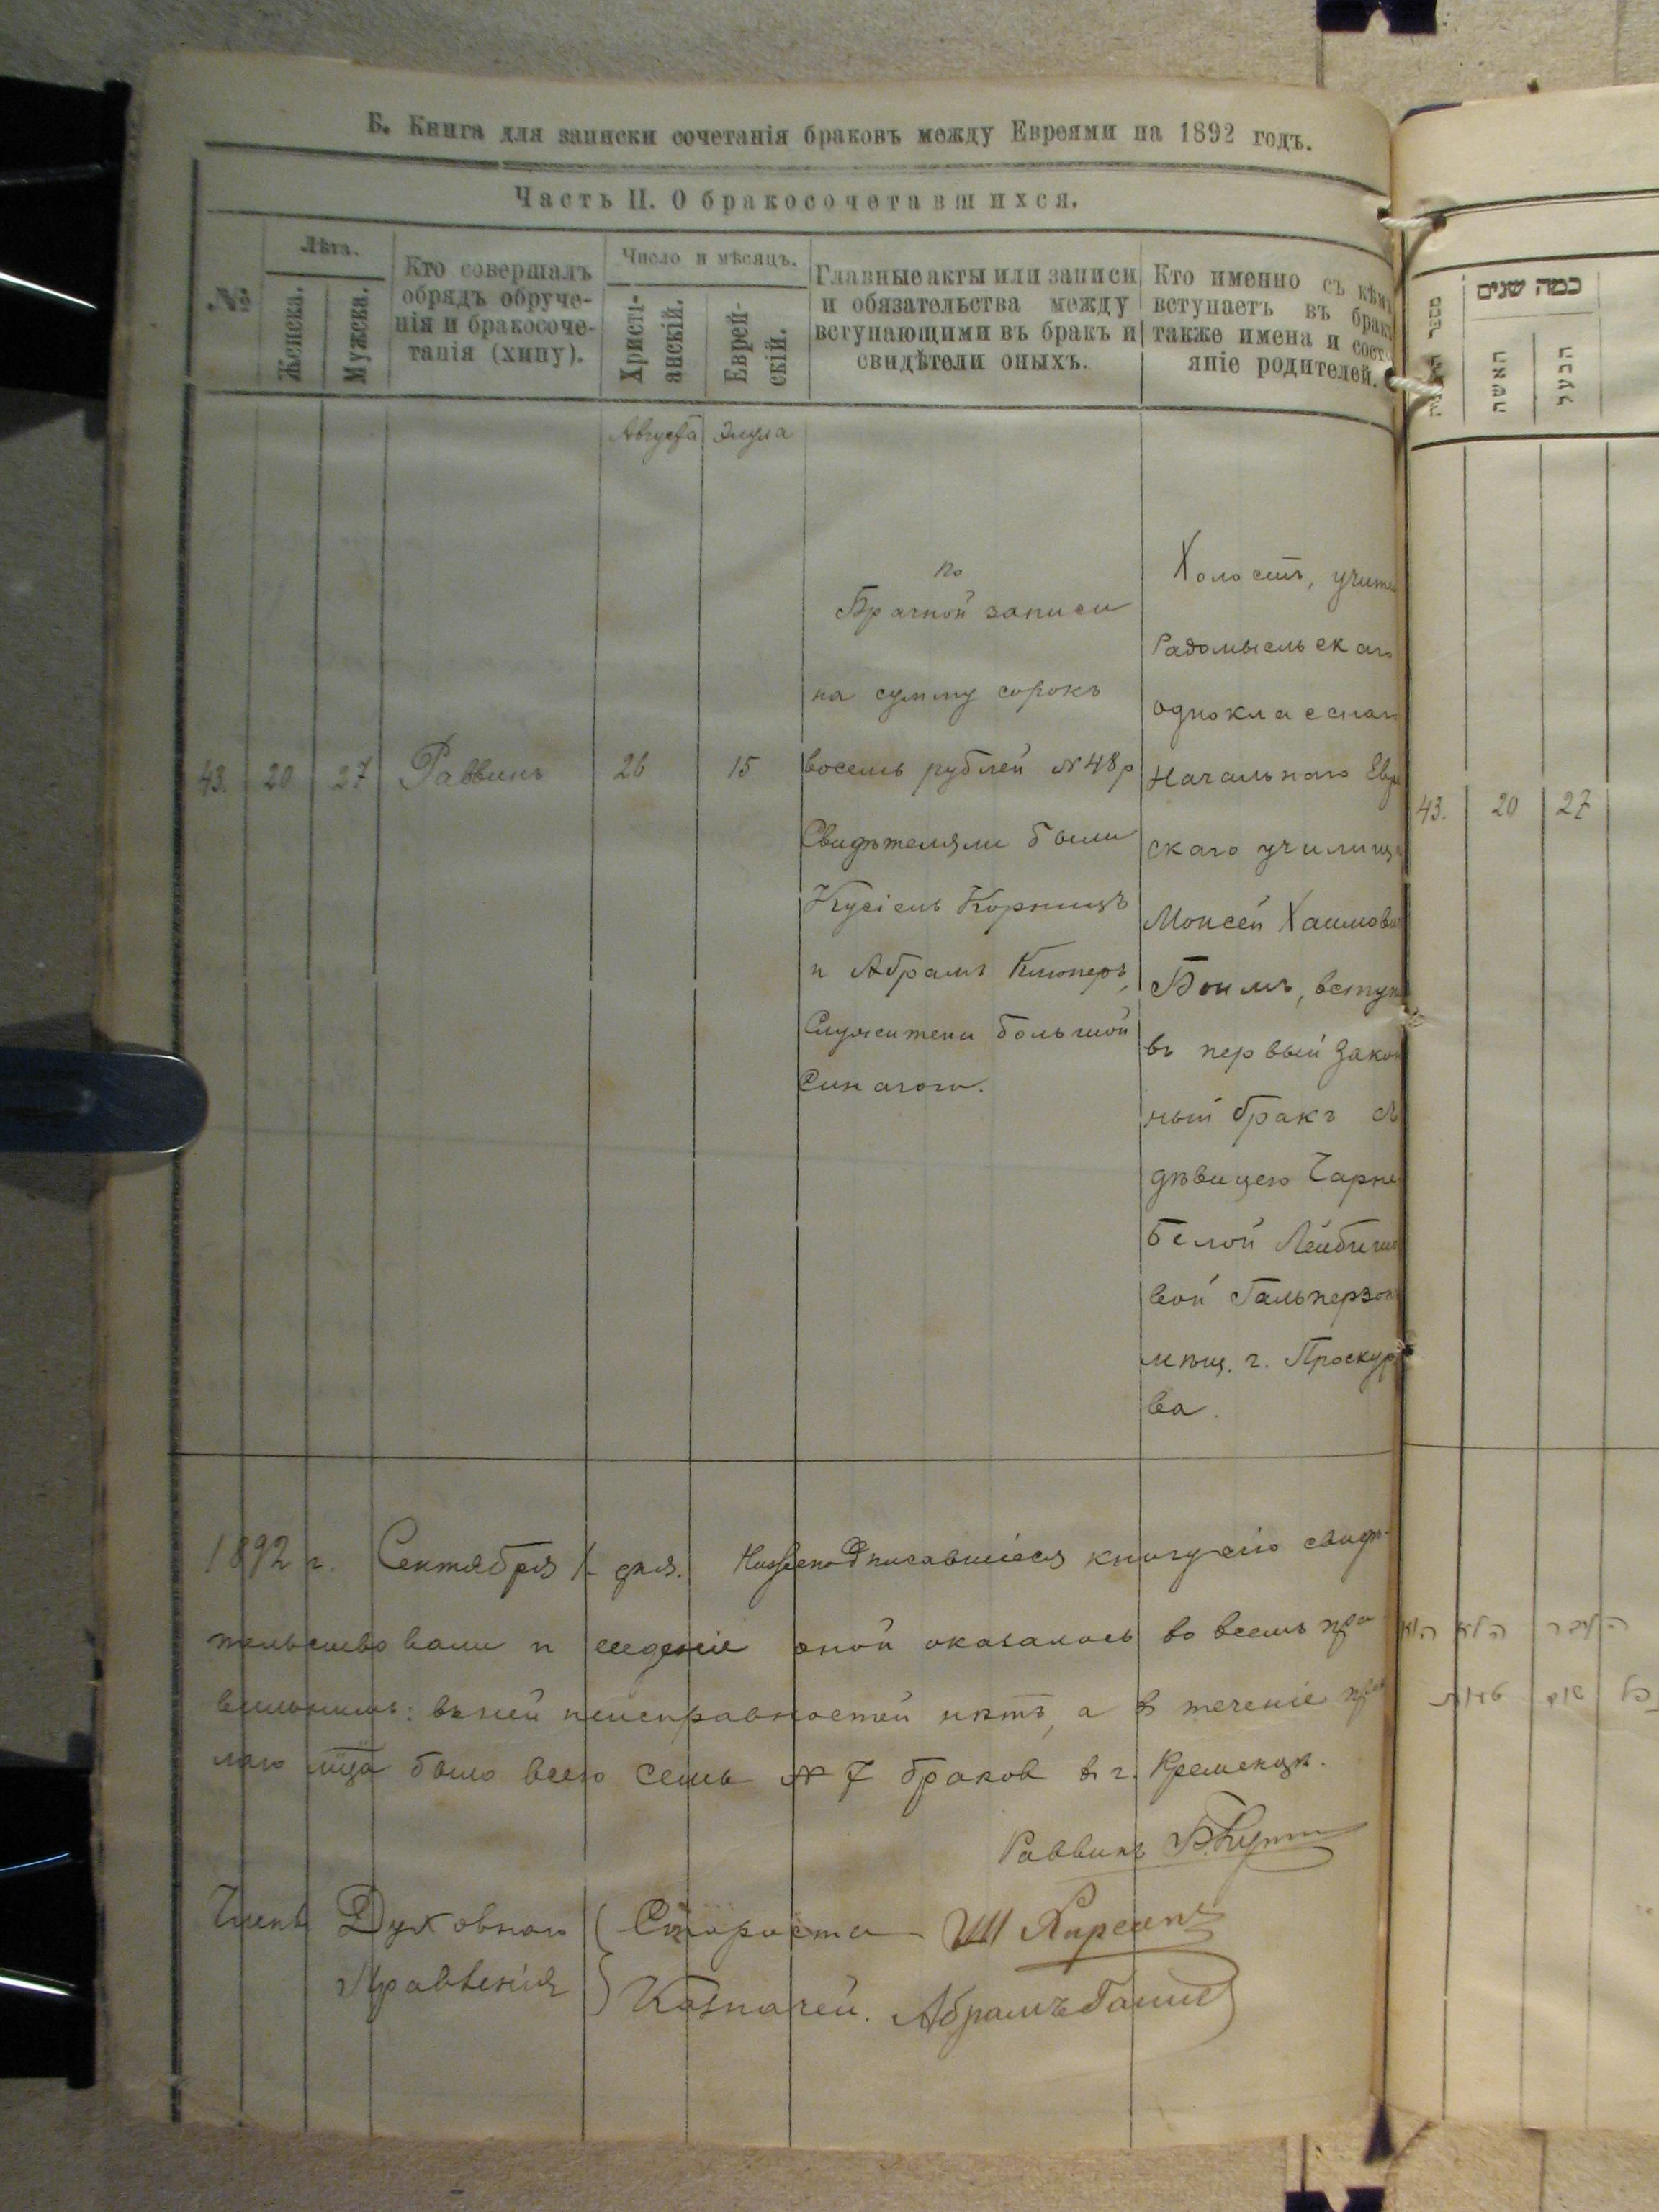 Б. Книга для записки сочетанія браковъ между Евреями на 1892 годъ.
Часть II. О бракосочетавшихся.
№
Лѣта.
Женска.
Мужска.
Кто совершалъ
обрядъ обруче-
нія и бракосоче-
танія (хипу).
Число и мѣсяцъ.
Христі-
анскій.
Еврей-
скій.
Главные акты или записи
и обязательства между
вступающими въ бракъ и
свидѣтели оныхъ.
Кто именно съ кѣмъ
вступаетъ въ бракъ
также имена и состо
яніе родителей.
Августа Элула
43. 20 27 Раввинъ 26 15
по
Брачной записи
на сумму сорокъ
восемь рублей №48р
Свидѣтелями были
Кусіель Корницъ
и Абрамъ Клюперъ,
Служители большой
Синагоги.
Холостъ, учите
Радомысльскаго
однокласнаг
Начальнаго Евре
скаго училища
Моисей Хаимови
Боимъ, вступи
въ первый Закон
ный бракъ съ
дѣвицею Чарне
Белой Лейбиши
вой Гальперзон
мѣщ. г. Проскур
ва.
1892 г. Сентября 1 дня. Нижеподписавшіеся книгу сію свидѣ-
тельствовали и веденіе оной оказалось во всемъ пра
вильнымъ: въ ней неисправностей нѣтъ, а въ теченіе
лаго мца было всего семь № 7 браковъ в г. Кременцѣ.
Раввинъ
Члены Духовнаго
Правленія
Староста Ш
Казначей. Абрамъ
כמה שנים
מספר
האשה
הבעל
43. 20 27